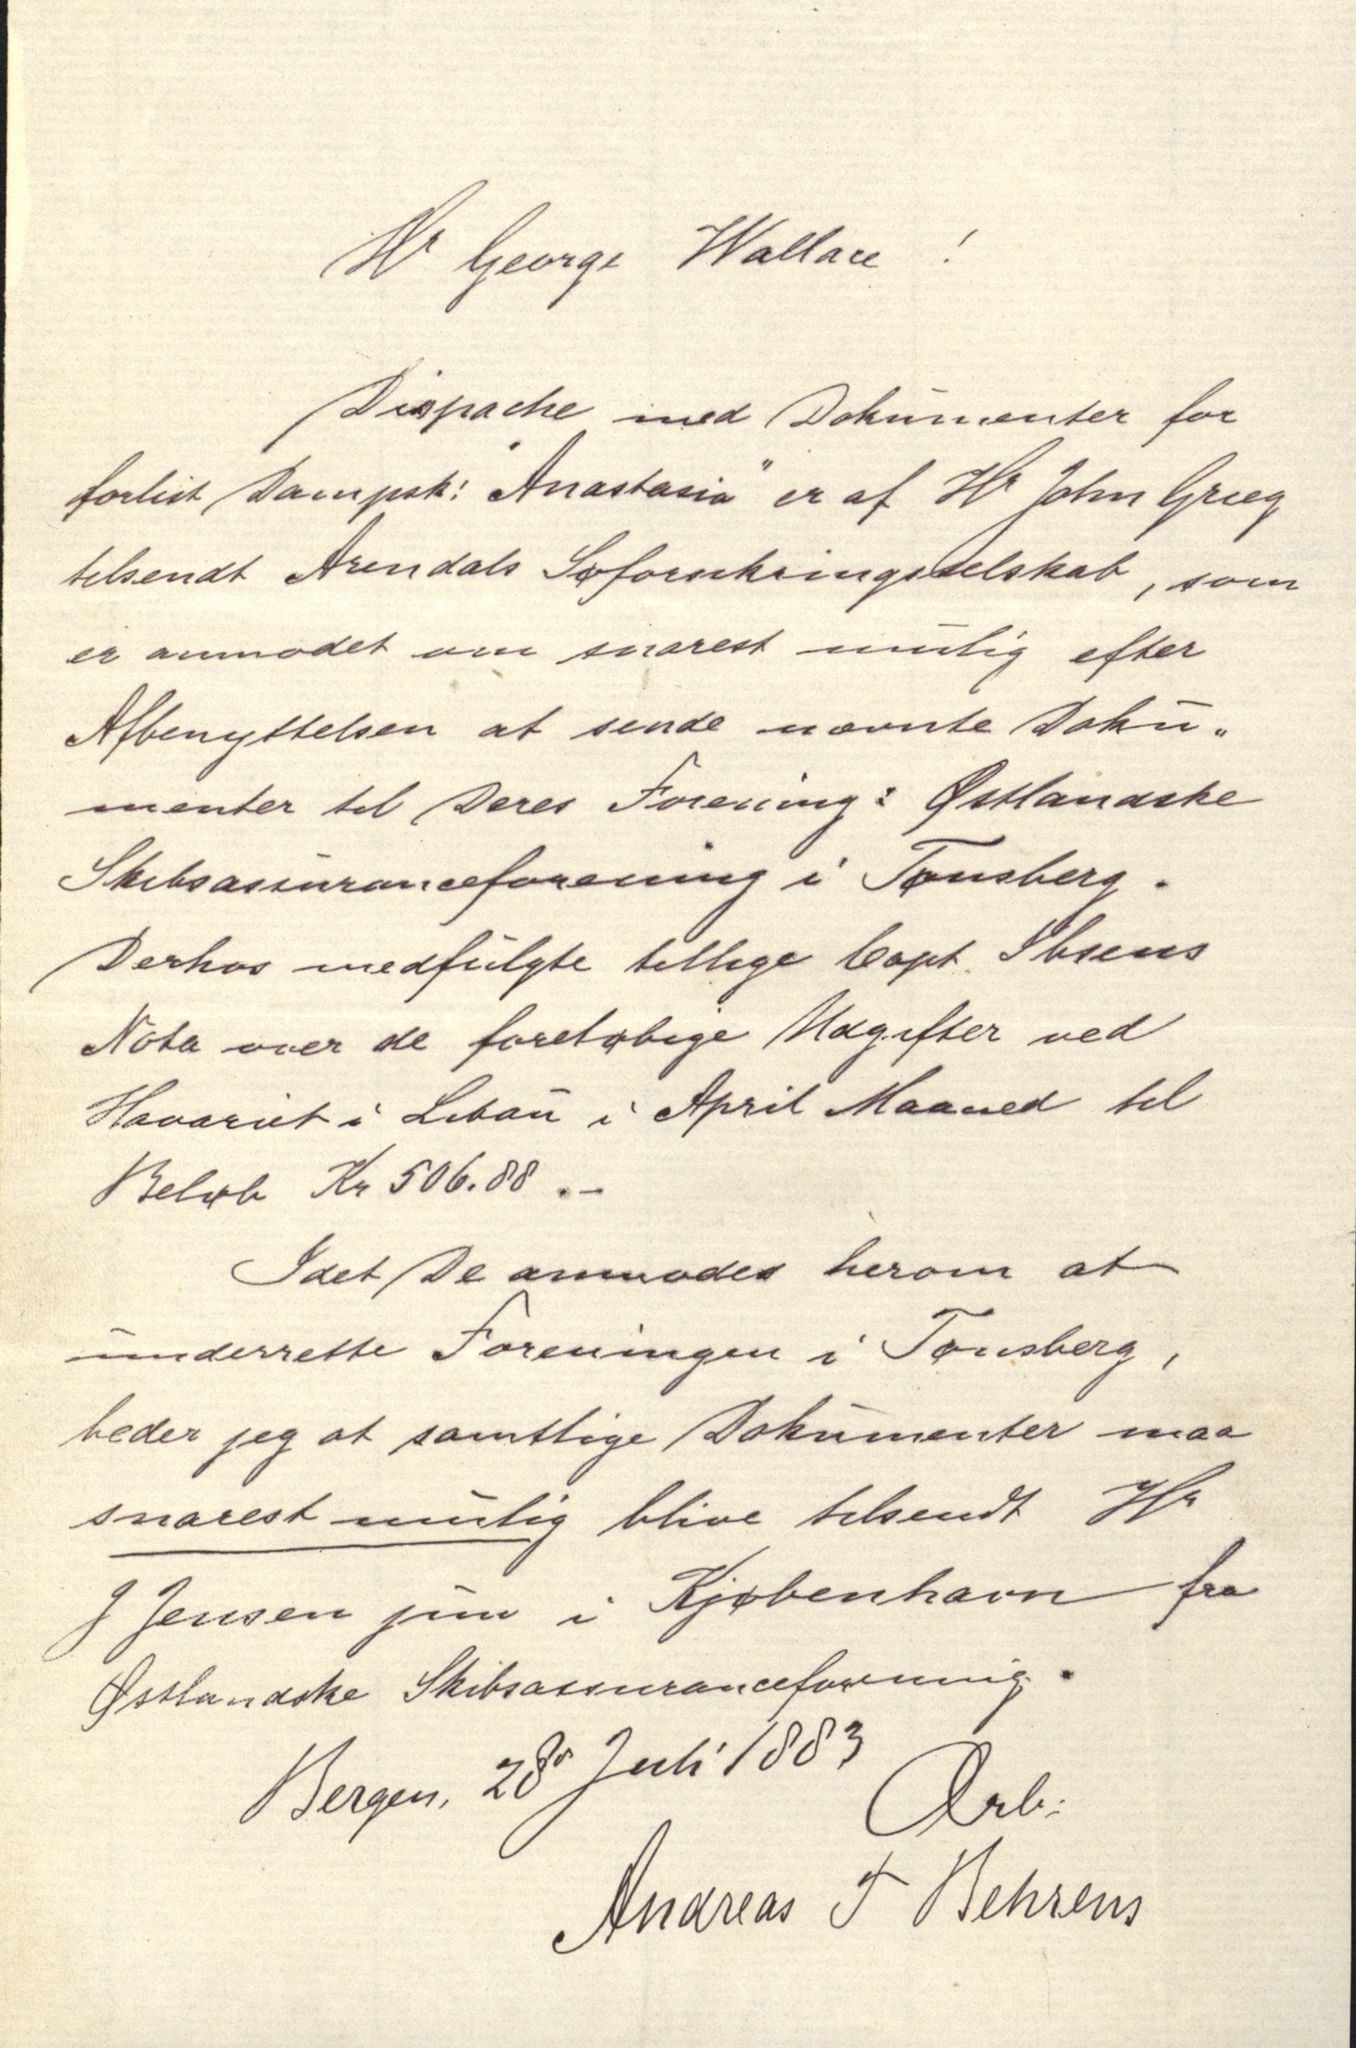 Hr George Wallace !
Dispache med Dokumenter for
forlist Dampsk: "Anastasia" er af Hr John Grieg
tilsendt Arendals Søforsikringsselskab, som
er anmodet om snarest mulig efter
Afbenyttelsen at sende nævnte Doku„
menter til Deres Forening: Østlandske
Skibsassuranceforening i Tønsberg.
Derhos medfulgte tillige Capt. Ibsens
Nota over de foreløbige Udgifter ved
Havariet i Libau i April Maaned til
Beløb Kr 506.88.–
Idet De anmodes herom at
underrette Foreningen i Tønsberg,
beder jeg at samtlige Dokumenter maa
snarest mulig blive tilsendt Hr
J Jensen jun i Kjøbenhavn fra
Østlandske Skibsassuranceforening.
Bergen, 28de Juli 1883
Ærb:
Andreas F Behrens